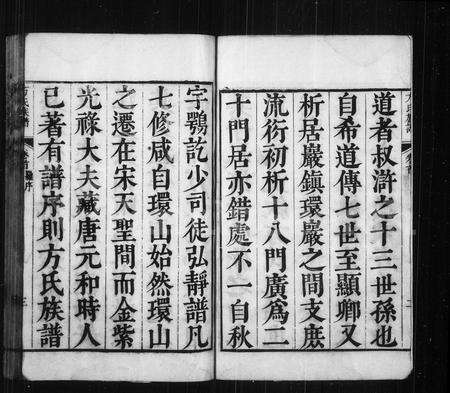 道者叔滸之十三世孫也
自希道傳七世至顯卿又
析居巖鎮環巖之間支庶
流衍初析十八門廣為二
十門居亦錯處不一自秋
宇鶚訖少司徒弘靜譜凡
七修咸自環山始然環山
之遷在宋天聖間而金紫
光祿大夫藏唐元和時人
已著有譜序則方氏族譜